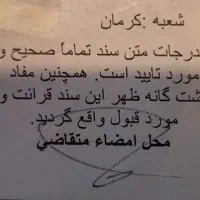 شعبه :کرمان
درجات متن سند تماماً صحیح و
مورد تایید است. همچنین مفاد
شت گانه ظهر این سند قرائت و
مورد قبول واقع گردید.
محل امضاء متقاضی